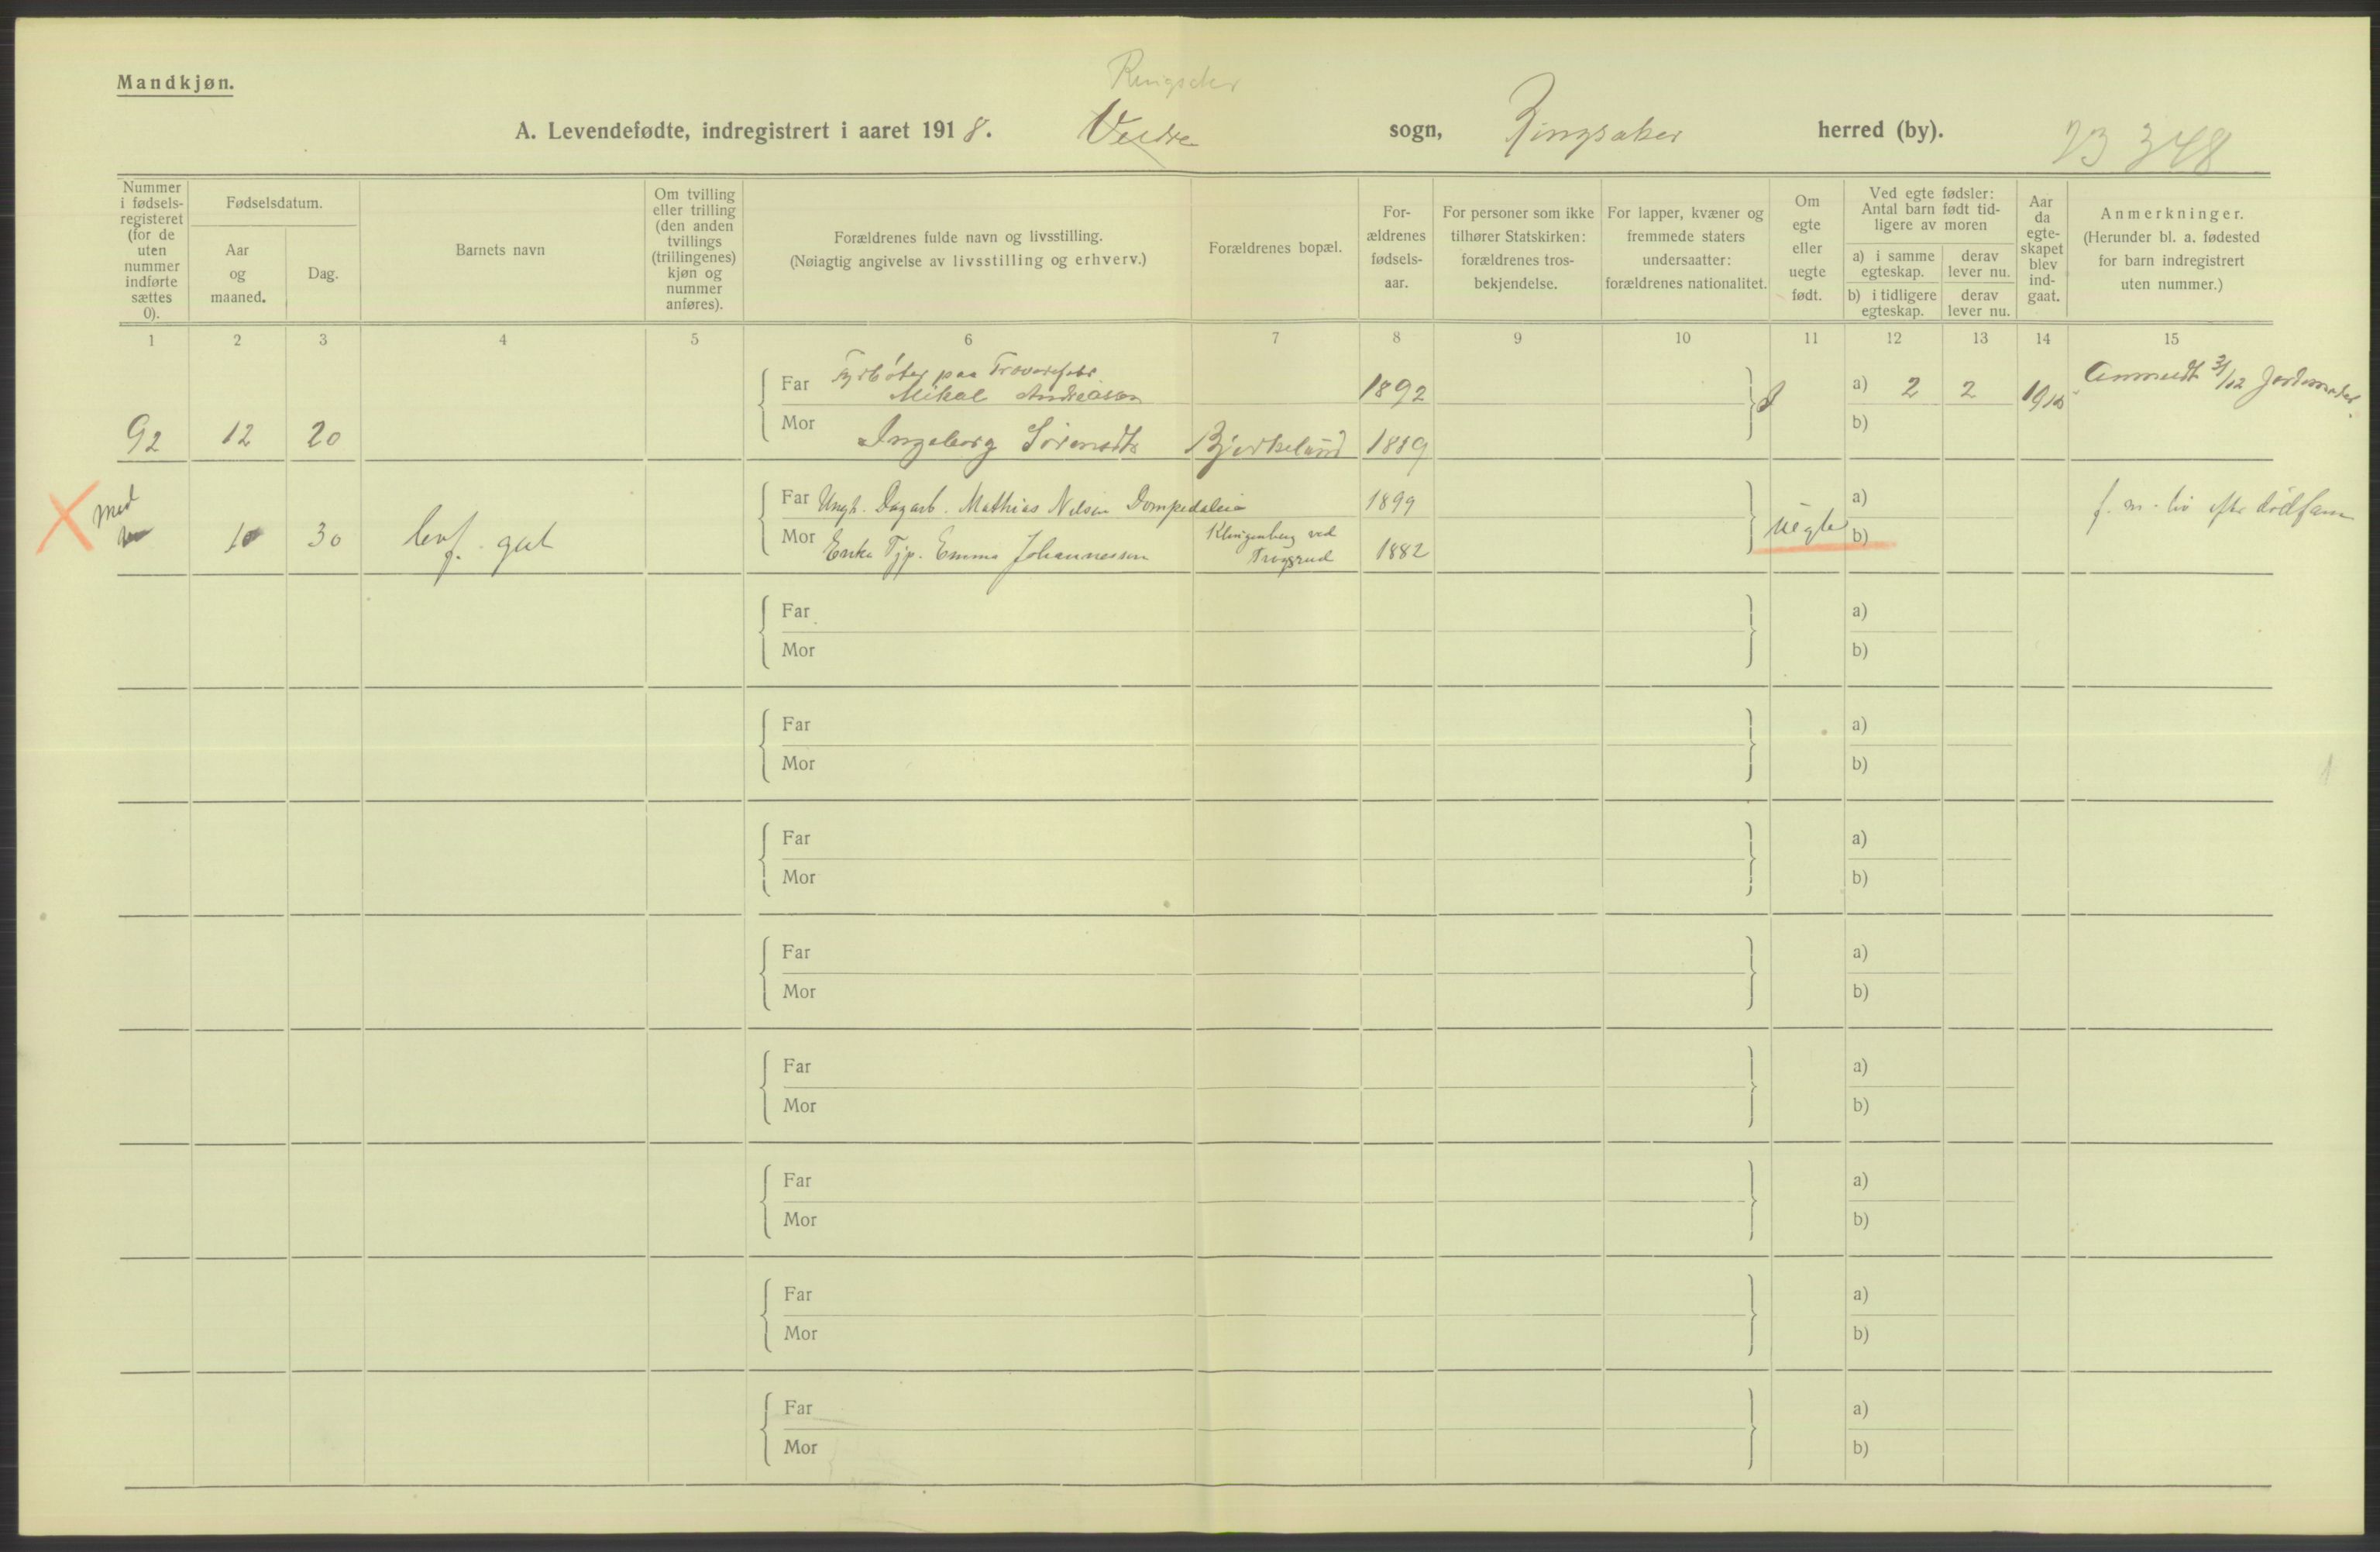 Mandkjøn.
Ringsaker
A. Levendefødte, indregistrert i aaret 1918. Veldre sogn, Ringsaker herred (by).
348
Nummer i fødsels-registeret (for de uten nummer indførte sættes 0).
Fødselsdatum.
Aar og maaned.
Dag.
Barnets navn
Om tvilling eller trilling (den anden tvillings (trillingenes) kjøn og nummer anføres).
Forældrenes fulde navn og livsstilling.
(Nøiagtig angivelse av livsstilling og erhverv.)
Forældrenes bopæl.
For-ældrenes fødsels-aar.
For personer som ikke tilhører Statskirken: forældrenes tros-bekjendelse.
For lapper, kvæner og fremmede staters undersaatter: forældrenes nationalitet.
Om egte eller uegte født.
Ved egte fødsler: Antal barn født tid-ligere av moren
a) i samme egteskap.
derav lever nu.
b) i tidligere egteskap.
derav lever nu.
Aar da egte-skapet blev ind-gaat.
Anmerkninger.
(Herunder bl. a. fødested for barn indregistrert uten nummer.)
1 2 3 4 5 6 7 8 9 10 11 12 13 14 15
Fyrbøter paa
Far Mikal Andreassen 1892 a) 2 2 Anmeldt Jordmoder.
Mor Ingeborg Bjerkelund 1889 b)
92 12 20
Far Ungk. Dagarb. Mathias Nilsen 1899 a)
Mor Enke Tjp. Emma Johannessen Klingenberg ved 1882 uegte b)
med 10 30 levf. gut f. m. liv
Far a)
Mor b)
Far a)
Mor b)
Far a)
Mor b)
Far a)
Mor b)
Far a)
Mor b)
Far a)
Mor b)
Far a)
Mor b)
Far a)
Mor b)